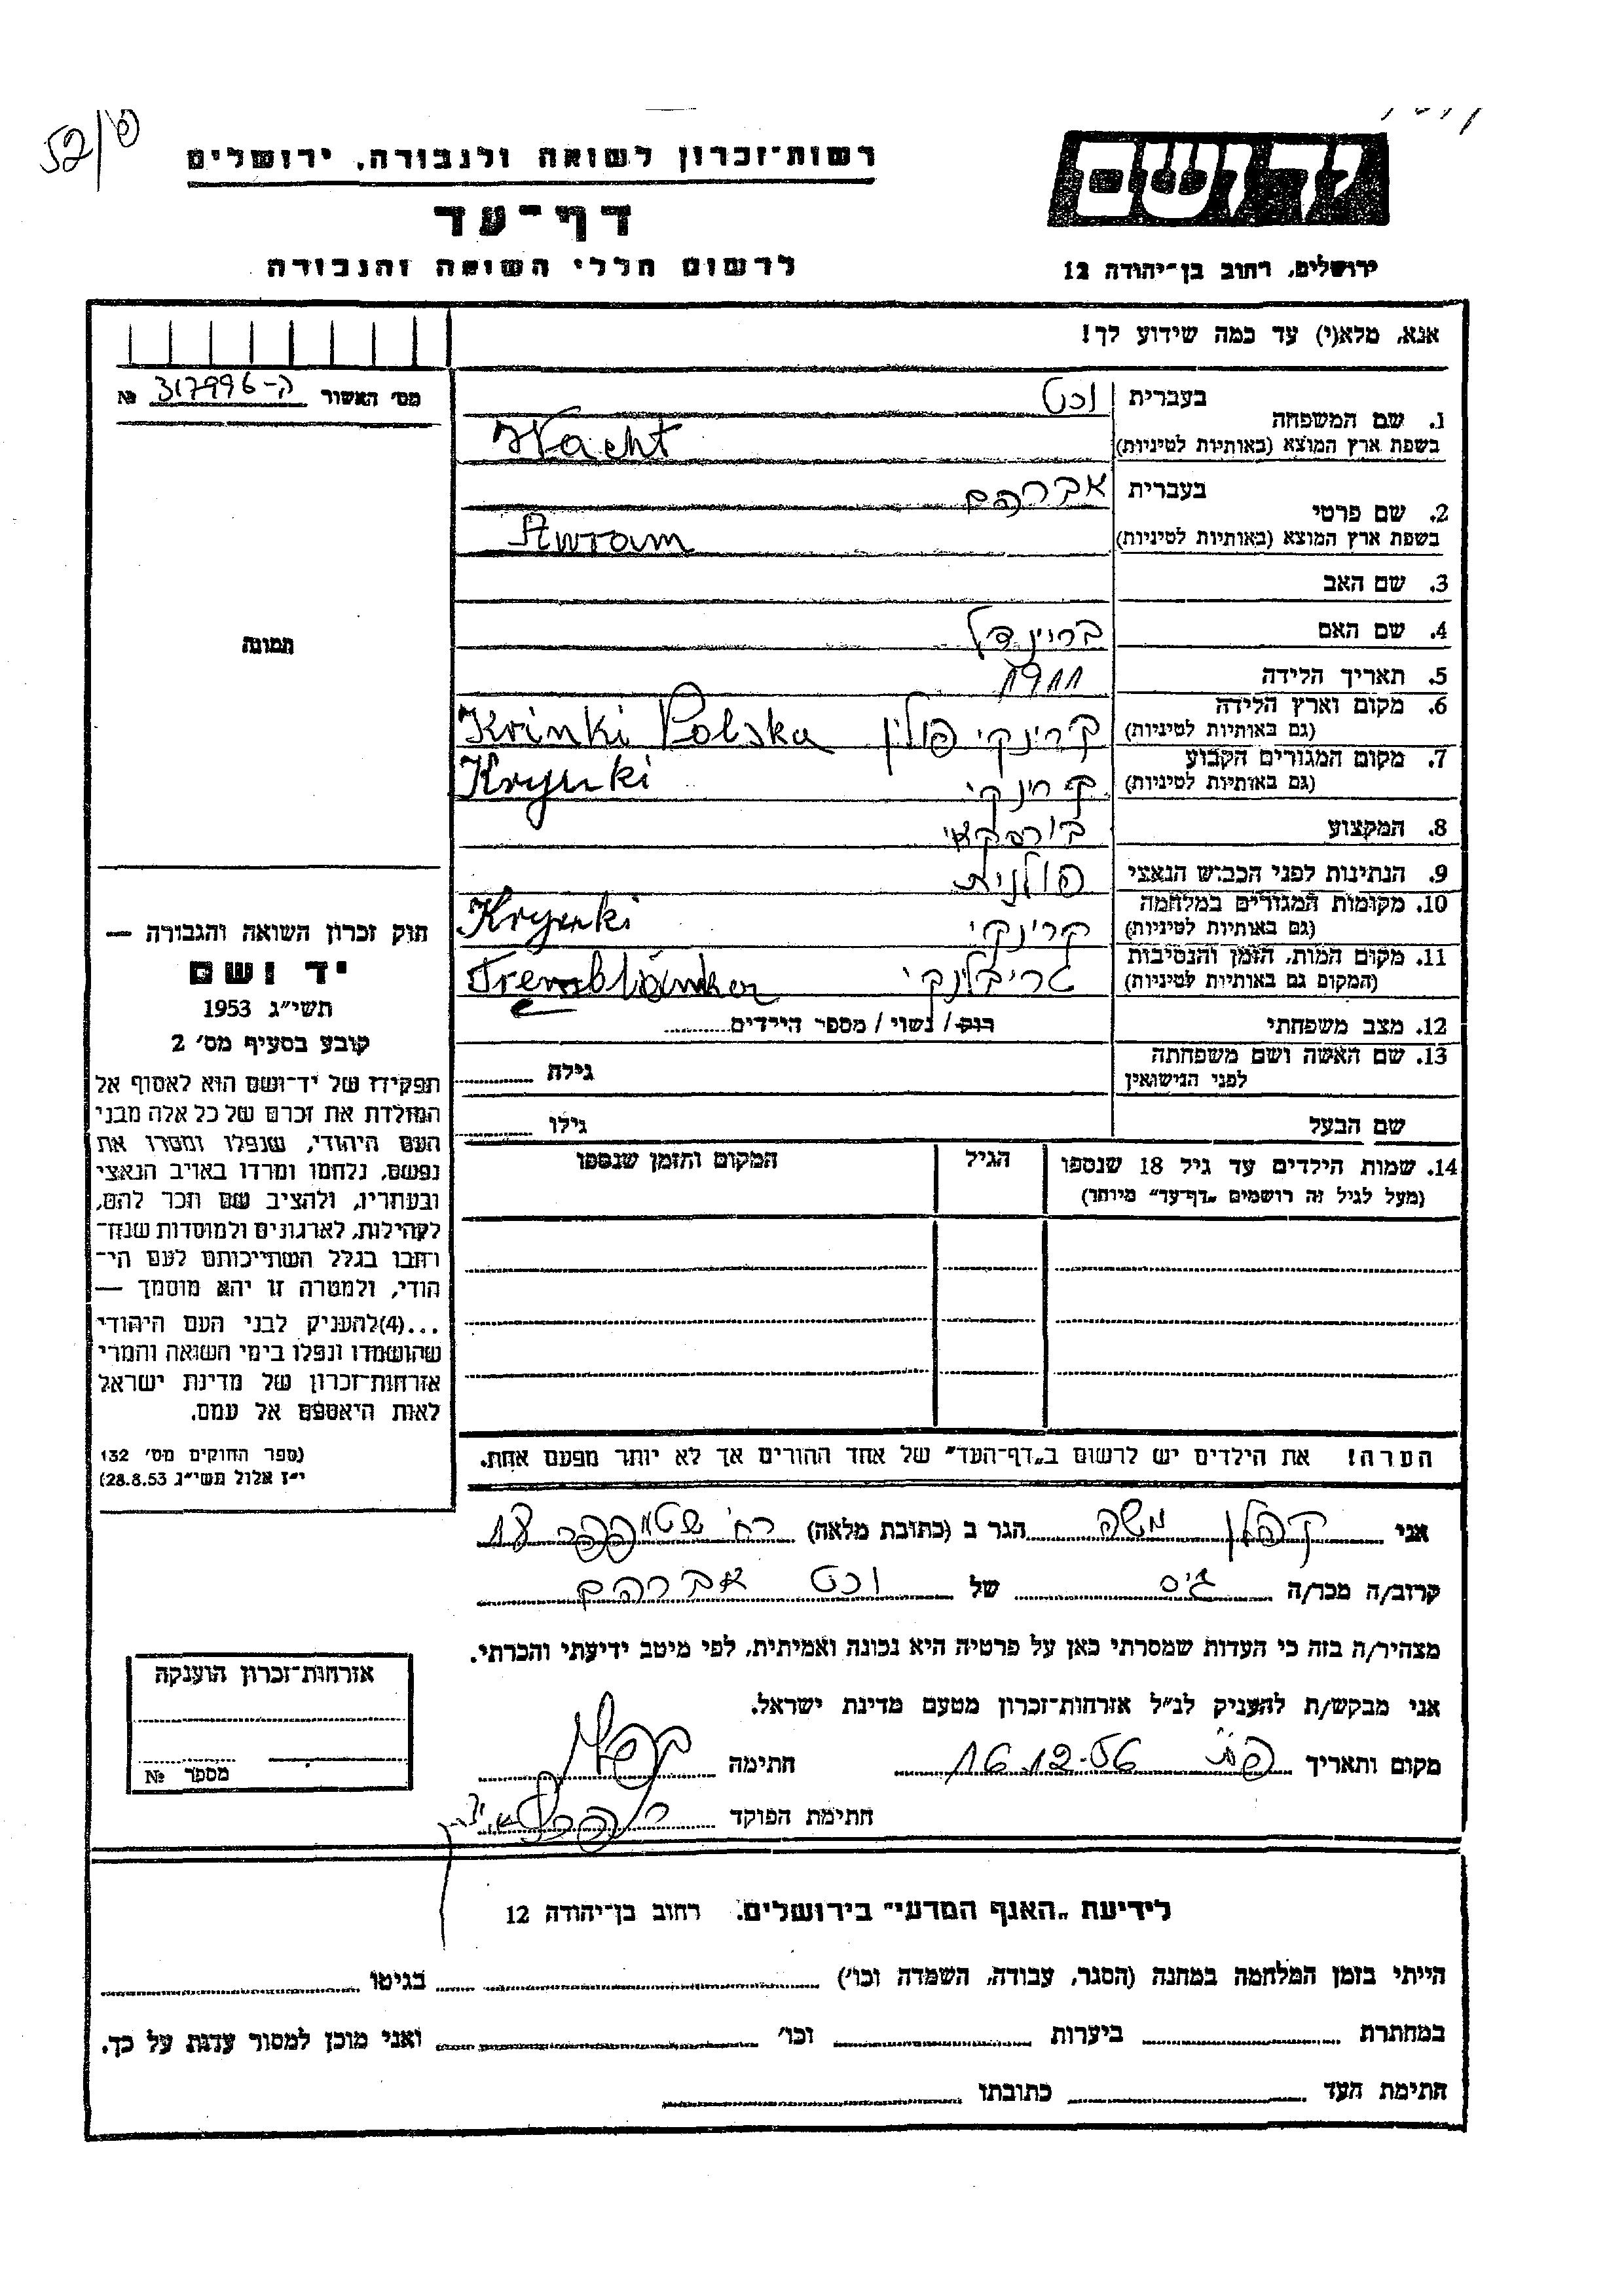 52/ש
יד ושם
רשות־זכרון לשואה ולגבורה, ירושלים
דף־עד
לרשום חללי השואה והגבורה
ירושלים, רחוב בן־יהודה 12
אנא, מלא(י) עד כמה שידוע לך!
מס׳ האשור ה-317996 №
1. שם המשפחה
בעברית וכט
בשפת ארץ המוצא (באותיות לטיניות) Wacht
2. שם פרטי
בעברית אברהם
בשפת ארץ המוצא (באותיות לטיניות) Awram
3. שם האב
4. שם האם בריינדל
5. תאריך הלידה 1911
6. מקום וארץ הלידה
(גם באותיות לטיניות) קרינקי פולין Krinki Polska
7. מקום המגורים הקבוע
(גם באותיות לטיניות) קרינקי Krynki
8. המקצוע בורסקאי
9. הנתינות לפני הכבוש הנאצי פולנית
10. מקומות המגורים במלחמה
(גם באותיות לטיניות) קרינקי Krynki
11. מקום המות, הזמן והנסיבות
(המקום גם באותיות לטיניות) טריבלינקי
12. מצב משפחתי רווק/ נשוי/ מספר הילדים
13. שם האשה ושם משפחתה
לפני הנישואין גילה
שם הבעל גילו
14. שמות הילדים עד גיל 18 שנספו
(מעל לגיל זה רושמים „דף־עד” מיוחד)
הגיל
המקום והזמן שנספו
הערה! את הילדים יש לרשום ב„דף־העד” של אחד ההורים אך לא יותר מפעם אחת.
תמונה
חוק זכרון השואה והגבורה —
יד ושם
תשי״ג 1953
קובע בסעיף מס׳ 2
תפקידו של יד־ושם הוא לאסוף אל
המולדת את זכרם של כל אלה מבני
העם היהודי, שנפלו ומסרו את
נפשם, נלחמו ומרדו באויב הנאצי
ובעוזריו, ולהציב שם וזכר להם,
לקהילות, לארגונים ולמוסדות שנח־
רחבו בגלל השתייכותם לעם הי־
הודי, ולמטרה זו יהא מוסמך —
...(4)להעניק לבני העם היהודי
שהושמדו ונפלו בימי השואה והמרי
אזרחות־זכרון של מדינת ישראל
לאות היאספם אל עמם.
(ספר החוקים מס׳ 132
י״ז אלול תשי״ג 28.8.53)
אני קפלן משה הגר ב (כתובת מלאה) רח׳ 18
קרוב/ה מכר/ה גיס של וכט אברהם
מצהיר/ה בזה כי העדות שמסרתי כאן על פרטיה היא נכונה ואמיתית, לפי מיטב ידיעתי והכרתי.
אני מבקש/ת להעניק לנ״ל אזרחות־זכרון מטעם מדינת ישראל.
מקום ותאריך 16.12.56 חתימה
חתימת הפוקד
אזרחות־זכרון הוענקה
מספר №
לידיעת „האגף המדעי” בירושלים. רחוב בן־יהודה 12
הייתי בזמן המלחמה במחנה (הסגר, עבודה, השמדה וכו׳) בגיטו
במחתרת ביערות וכו׳ ואני מוכן למסור עדות על כך.
חתימת העד כתובתו